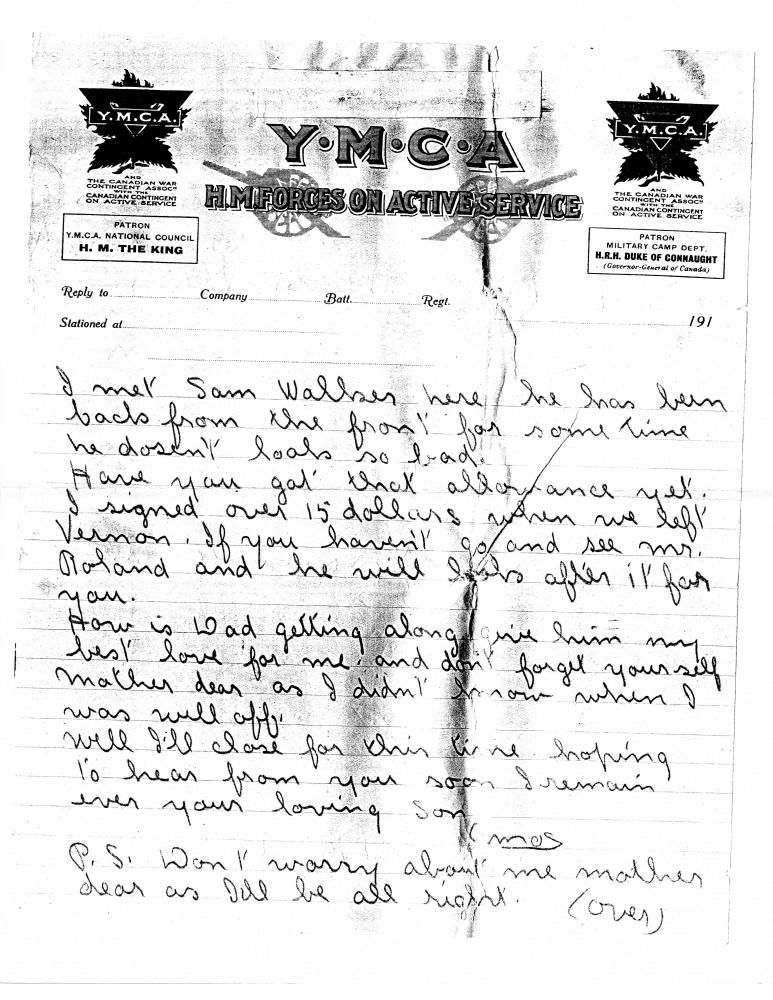 Y.M.C.A.
AND
THE CANADIAN WAR
CONTINGENT ASSOCN
WITH THE
CANADIAN CONTINGENT
ON ACTIVE SERVICE
PATRON
Y.M.C.A. NATIONAL COUNCIL
H. M. THE KING
Y·M·C·A
H.M. FORCES ON ACTIVE SERVICE
Y.M.C.A.
AND
THE CANADIAN WAR
CONTINGENT ASSOCN
WITH THE
CANADIAN CONTINGENT
ON ACTIVE SERVICE
PATRON
MILITARY CAMP DEPT.
H.R.H. DUKE OF CONNAUGHT
(Governor-General of Canada)
Reply to Company Batt. Regt.
Stationed at 191
I met Sam here he has been
back from the front for some time
he dosen't look so bad.
Have you got that allowance yet.
I signed over 15 dollars when we left
Vernon. If you haven't go and see mr.
Roland and he will look after it for
you.
How is Dad getting along give him my
best love for me. and don't forget yourself
mother dear as I didn't know when I
was well off.
Well I'll close for this time hoping
to hear from you soon I remain
ever your loving Son
P.S. Don't worry about me mother
dear as I'll be all right. (over)